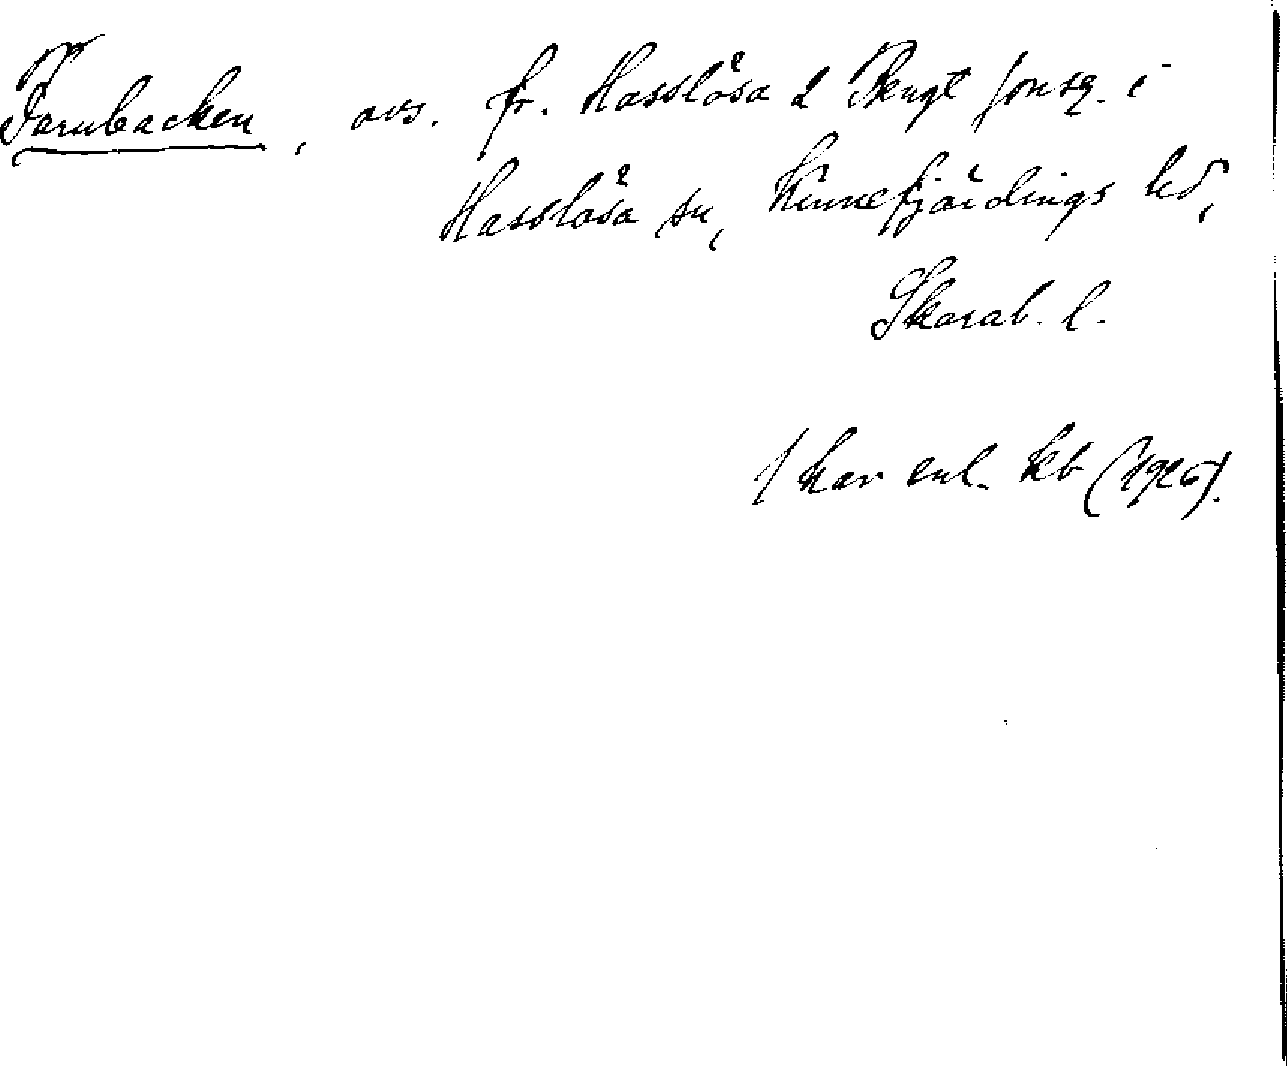 Tarnbacken, avs. fr. Hasslösa 2 Bengt Jonsg. i
Hasslösa sn, Kinnefjärdings hd,
Skarab. l.
1 har enl. kb (1926).